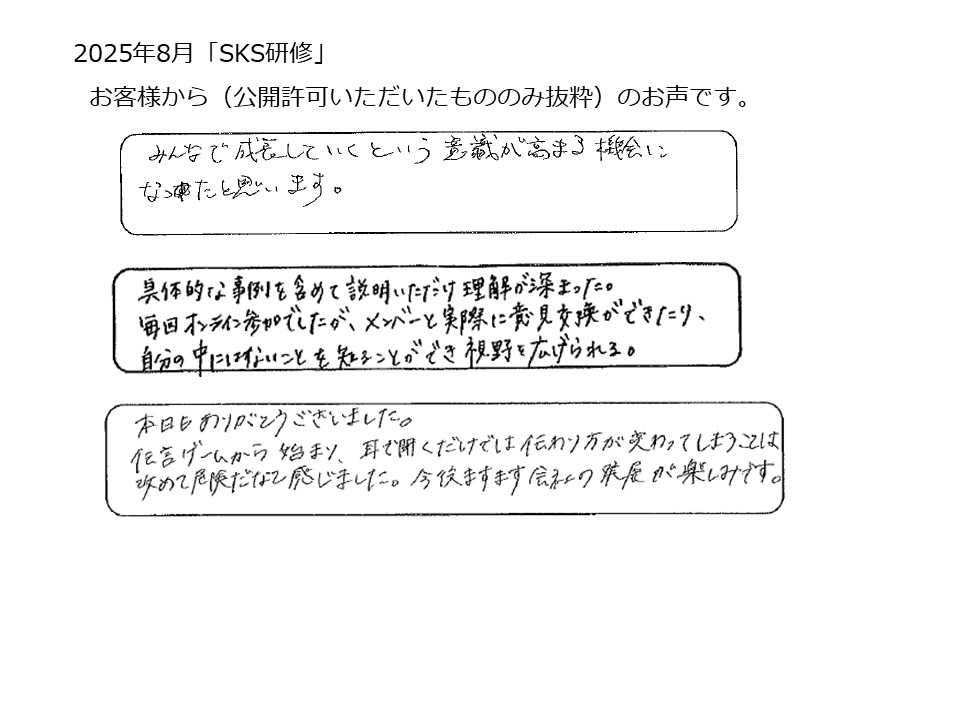 2025年8月「SKS研修」
お客様から（公開許可いただいたもののみ抜粋）のお声です。
みんなで成長していくという意識が高まる機会に
なったと思います。
具体的な事例を含めて説明いただけ理解が深まった。
毎回オンライン参加でしたが、メンバーと実際に意見交換ができたり、
自分の中にはないことを知ることができ視野を広げられる。
本日もありがとうございました。
伝言ゲームから始まり、耳で聞くだけでは伝わり方が変わってしまうことは
改めて危険だなと感じました。今後ますます会社の発展が楽しみです。